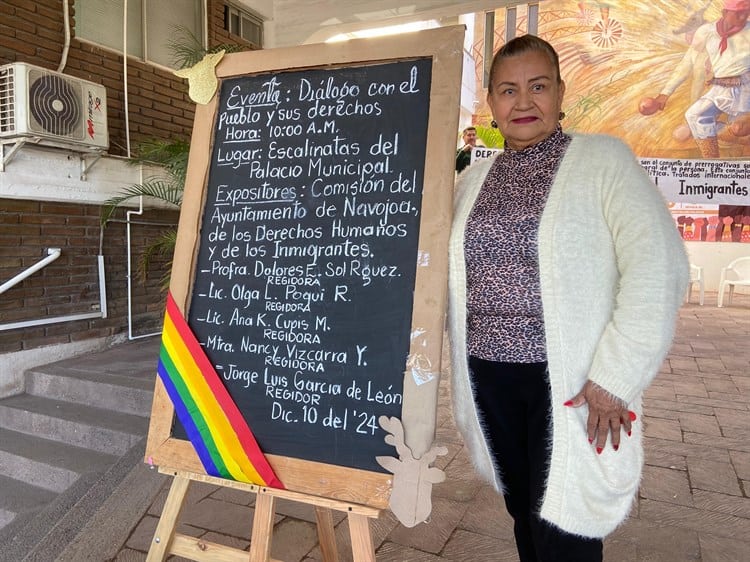 Eventa: Diálogo con el
Pueblo y sus derechos
Hora: 10:00 A.M.
Lugar: Escalinatas del
Palacio Municipal.
Expositores: Comisión del
Ayuntamiento de Navojoa,
de los Derechos Humanos
y de los Inmigrantes.
-Profra. Dolores E. Sol Rguez.
REGIDORA
-Lic. Olga L. Poqui R.
REGIDORA
-Lic. Ana K. Cupis M.
REGIDORA
-Mtra. Nancy Vizcarra Y.
REGIDORA
-Jorge Luis García de León
REGIDOR
Dic. 10 del '24
son el conjunto de prerrogativas
de la persona. Este conjunto
Tratados internacionales
Inmigrantes